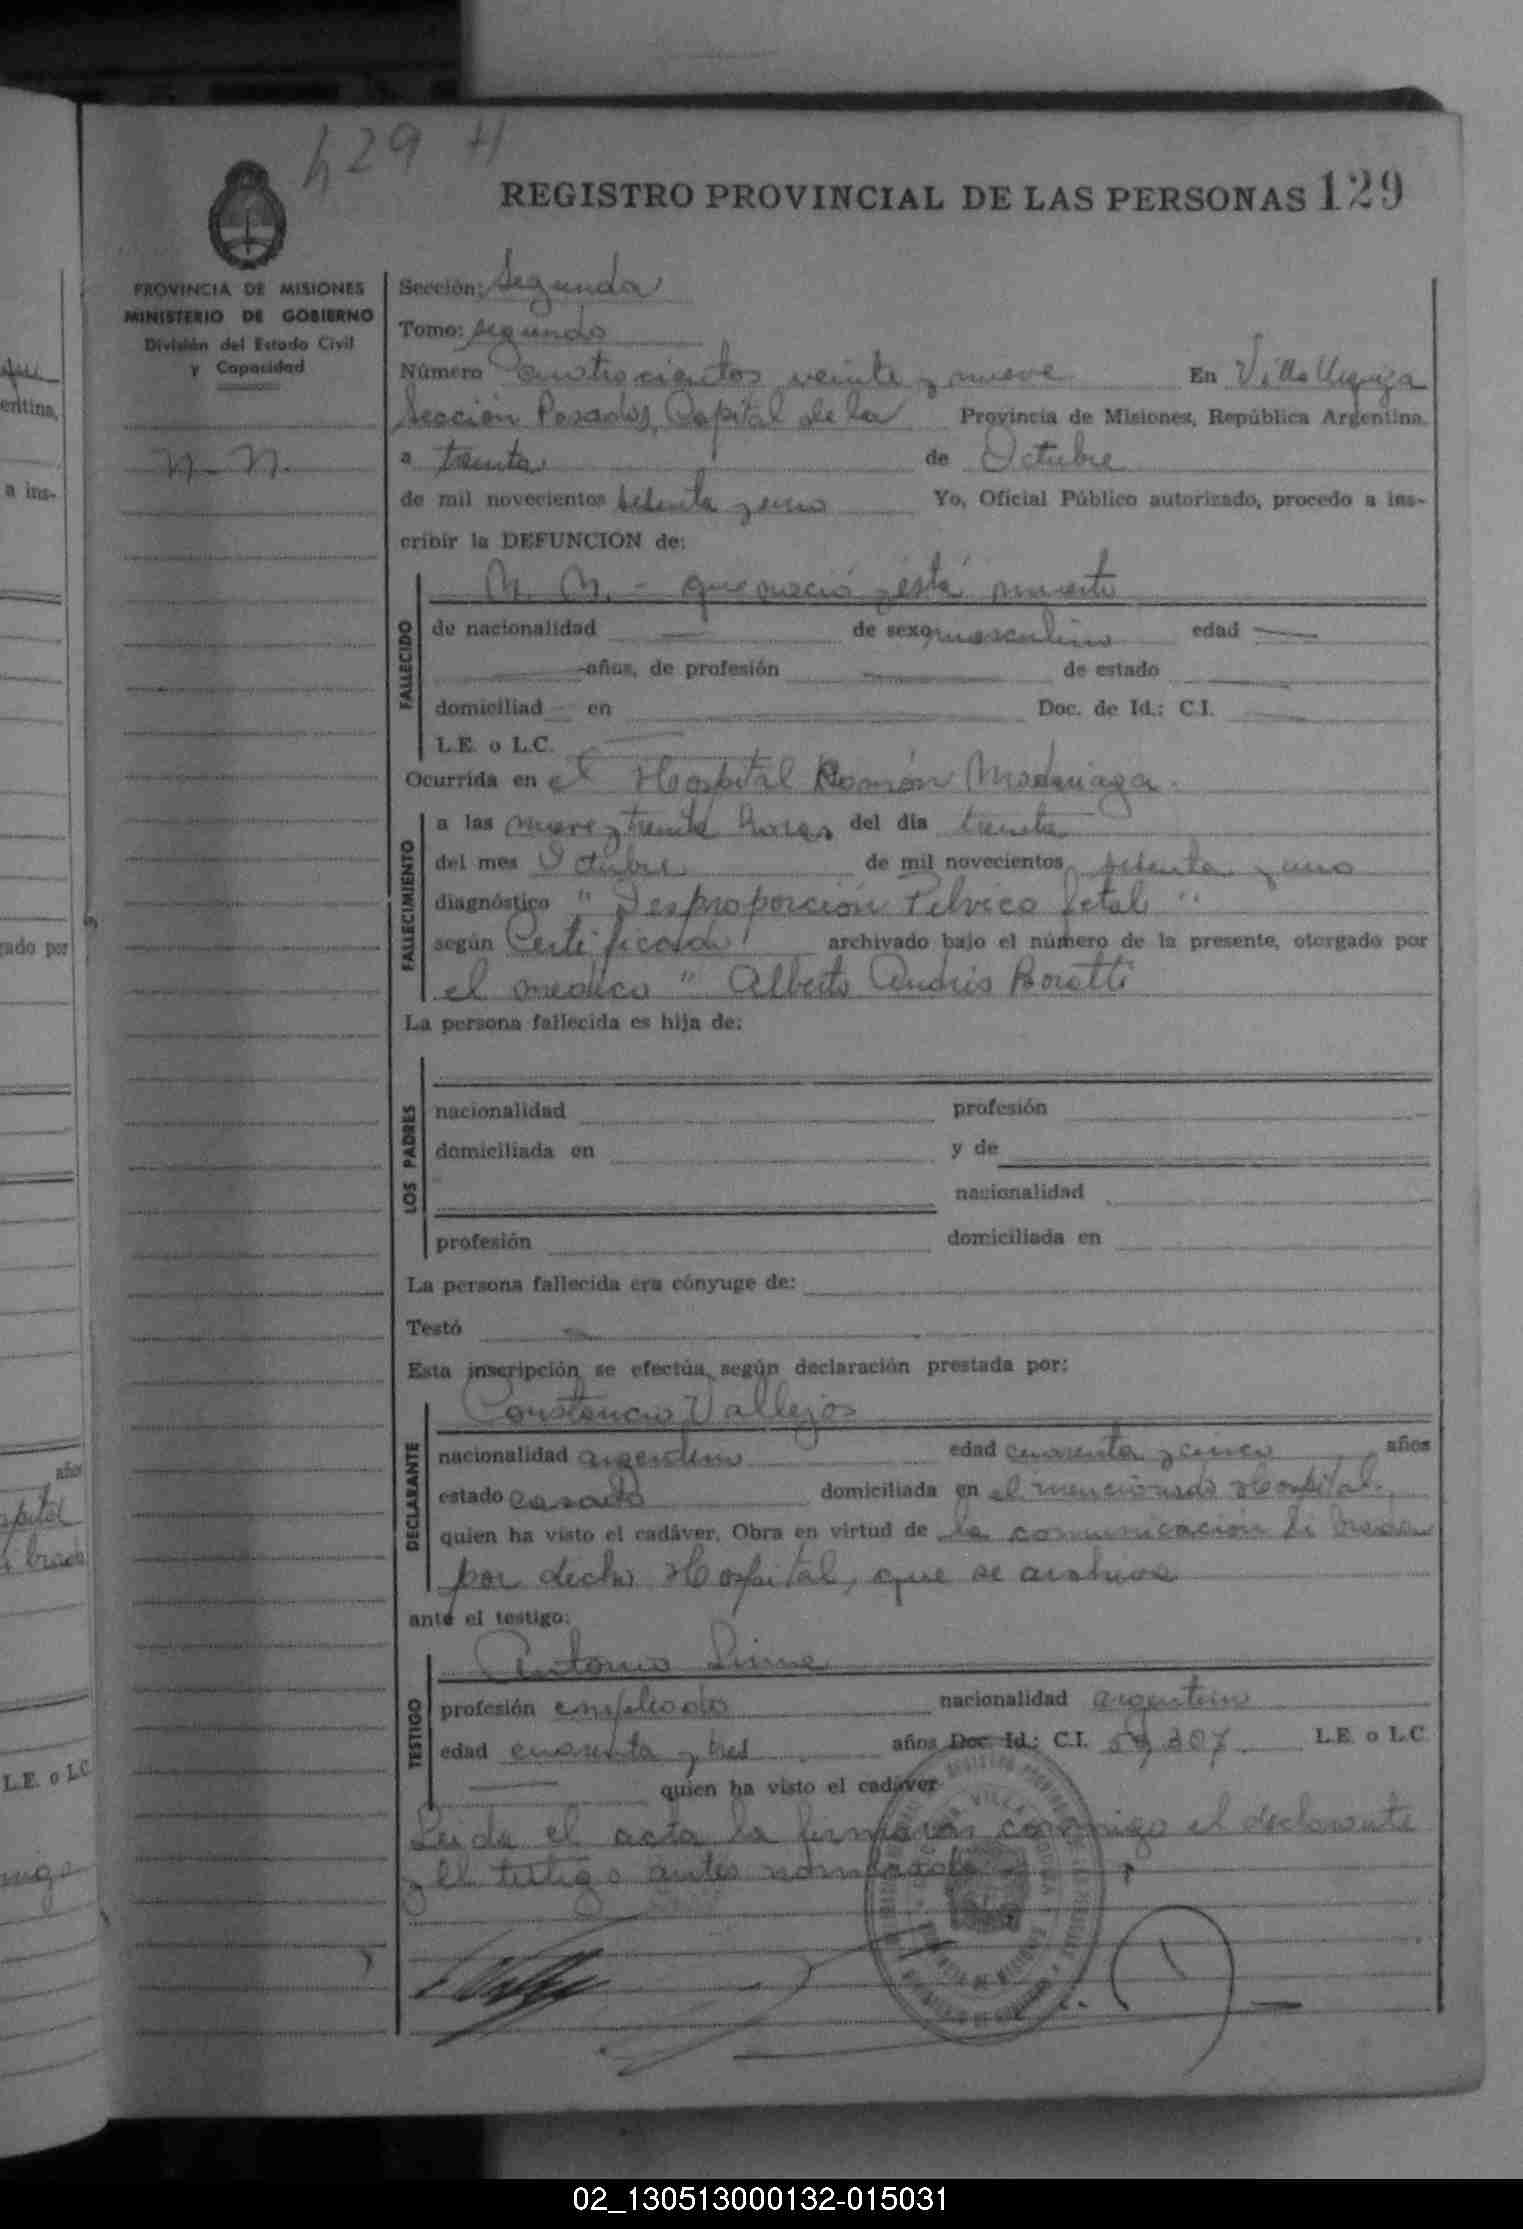 429 H
REGISTRO PROVINCIAL DE LAS PERSONAS 129
PROVINCIA DE MISIONES
MINISTERIO DE GOBIERNO
División del Estado Civil
y Capacidad
N. N.
Sección: Segunda
Tomo: segundo
Número Cuatrocientos veinte y nueve En Villa Urquiza
Sección Posadas, Capital de la Provincia de Misiones, República Argentina,
a treinta de Octubre
de mil novecientos setenta y uno Yo, Oficial Público autorizado, procedo a ins-
cribir la DEFUNCION de:
FALLECIDO
N. N. - que nació y está muerto
de nacionalidad — de sexo masculino edad —
— años, de profesión — de estado —
domiciliad — en — Doc. de Id.: C.I. —
L.E. o L.C. —
Ocurrida en el Hospital Ramón Madariaga.
FALLECIMIENTO
a las nueve y treinta horas del día treinta
del mes Octubre de mil novecientos setenta y uno
diagnóstico "Desproporción Pélvico fetal"
según Certificado archivado bajo el número de la presente, otorgado por
el médico " Alberto Andrés
La persona fallecida es hija de:
LOS PADRES
nacionalidad profesión
domiciliada en y de
nacionalidad
profesión domiciliada en
La persona fallecida era cónyuge de:
Testó —
Esta inscripción se efectúa, según declaración prestada por:
DECLARANTE
Constancio Vallejos
nacionalidad argentino edad cuarenta y cinco años
estado casado domiciliada en el mencionado Hospital.
quien ha visto el cadáver. Obra en virtud de la comunicación librada
por dicho Hospital, que se archiva
ante el testigo:
TESTIGO
Antonio
profesión empleado nacionalidad argentino
edad cuarenta y tres años Doc. Id.: C.I. L.E. o L.C.
— quien ha visto el cadáver
Leida el acta la firmaron conmigo el declarante
y el testigo antes nombrado
02_130513000132-015031